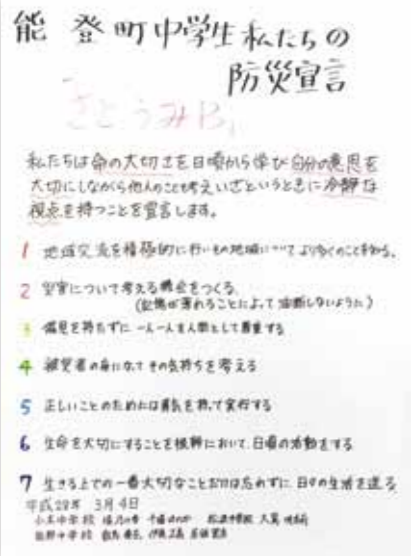 能登町中学生私たちの
防災宣言
さとうみ
私たちは命の大切さを日頃から学び自分の意思を
大切にしながら他人のことも考えいざというときに冷静な
視点を持つことを宣言します。
1 地域交流を積極的に行いその地域についてより多くのことを知る。
2 災害について考える機会をつくる
(記憶が薄れることによって油断しないように)
3 偏見を持たずに一人一人を人間として尊重する
4 被災者の身になってその気持ちを考える
5 正しいことのためには勇気を持って実行する
6 生命を大切にすることを根幹において、日頃の活動をする
7 生きる上での一番大切なことだけは忘れずに、日々の生活を送る
平成28年 3月4日
小木中学校 松波中学校
能都中学校